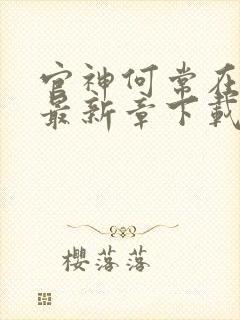 官神何常在
最新章下载
樱落落